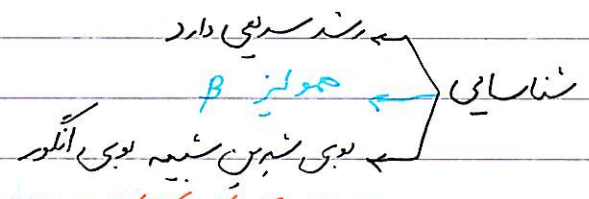 شناسایی
رشد سریعی دارد
همولیز β
بوی شیرین شبیه بوی انگور